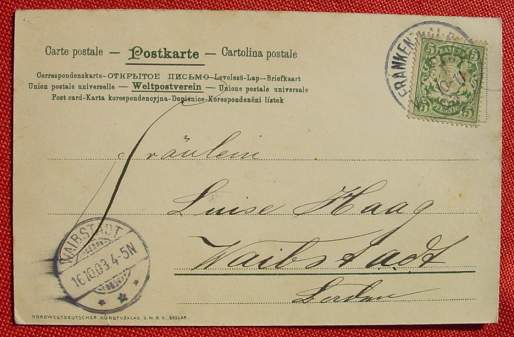 Carte postale — Postkarte — Cartolina postale
Correspondenzkarte - ОТКРЫТОЕ ПИСЬМО - Levelező-Lap - Briefkaart
Union postale universelle — Weltpostverein — Unione postale universale
Post card - Karta korespondencyjna - Dopisnice - Korespondenční lístek
FRANKENTHAL
5 5
5 5
Fräulein
Luise Haag
Waibstadt
Baden
WAIBSTADT
16.10.03.4-5N
NORDWESTDEUTSCHER KUNSTVERLAG G.M.B.H.